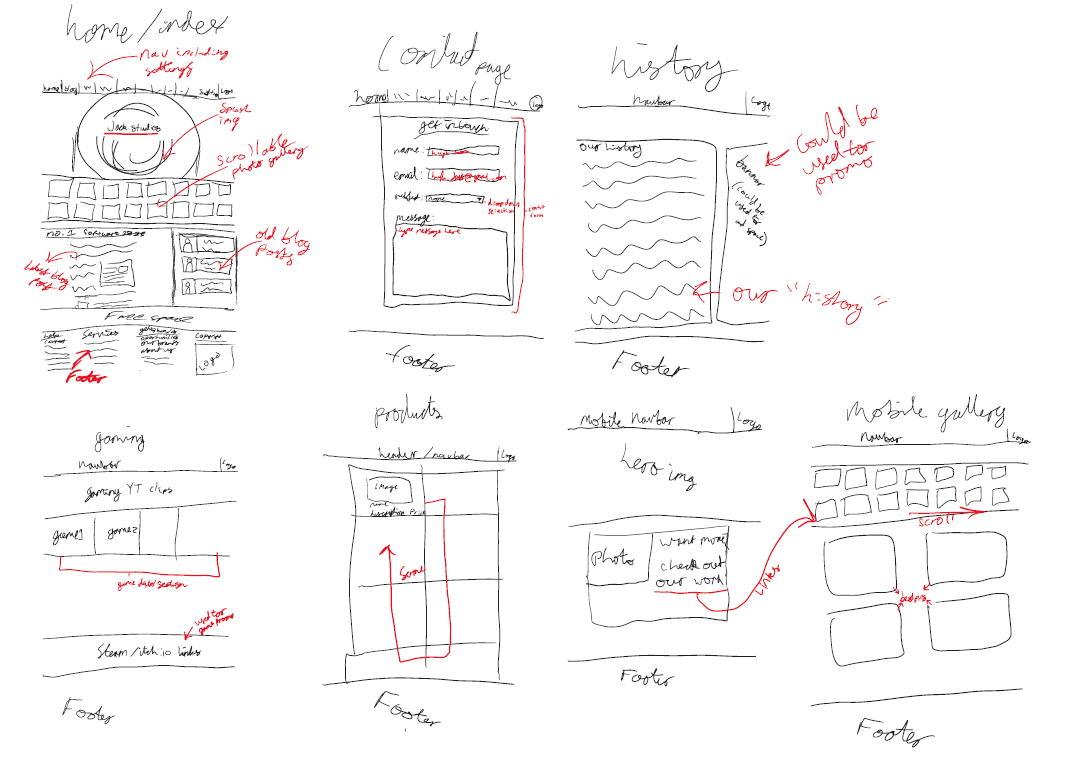 home/index
nav including
settings
home
blog
Logo
Jack studios
Splash
img
Scrollable
photo gallery
no.1 software
old blog
posts
Latest blog
post
Free space
Services
about us
Logo
Footer
Contact page
home
Logo
get in touch
name:
email:
none
dropdown
selection
message:
type message here
footer
history
Navbar
Logo
our history
banner
(could be
used for
ad space)
Could be
used for
promo
our "history"
Footer
gaming
navbar
Logo
gaming YT clips
game1
game2
used for
game promo
Steam/itch.io links
Footer
products
header/navbar
Logo
image
name
description Price
Same
Footer
Mobile Navbar
Logo
hero
img
Photo
want more
check out
our work
Links
Footer
Mobile gallery
Navbar
Logo
scroll
best pics
Footer